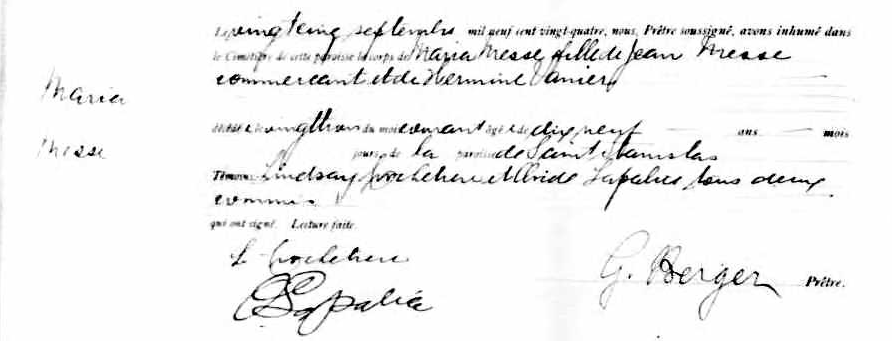 Le vingt cinq septembre mil neuf cent vingt-quatre, nous, Prêtre soussigné, avons inhumé dans
le Cimetière de cette paroisse le corps de Maria Messe fille de Jean Messe
commercant et de Hermine Vanier
Maria
décédée le vingt trois du mois courant âgée de dix neuf ans mois
Messe
jours, de la paroisse de Saint Stanislas
Témoins: Lindsay et Lapalice tous deux
commis
qui ont signé. Lecture faite.
L.
G. Berger Prêtre.
Lapalice